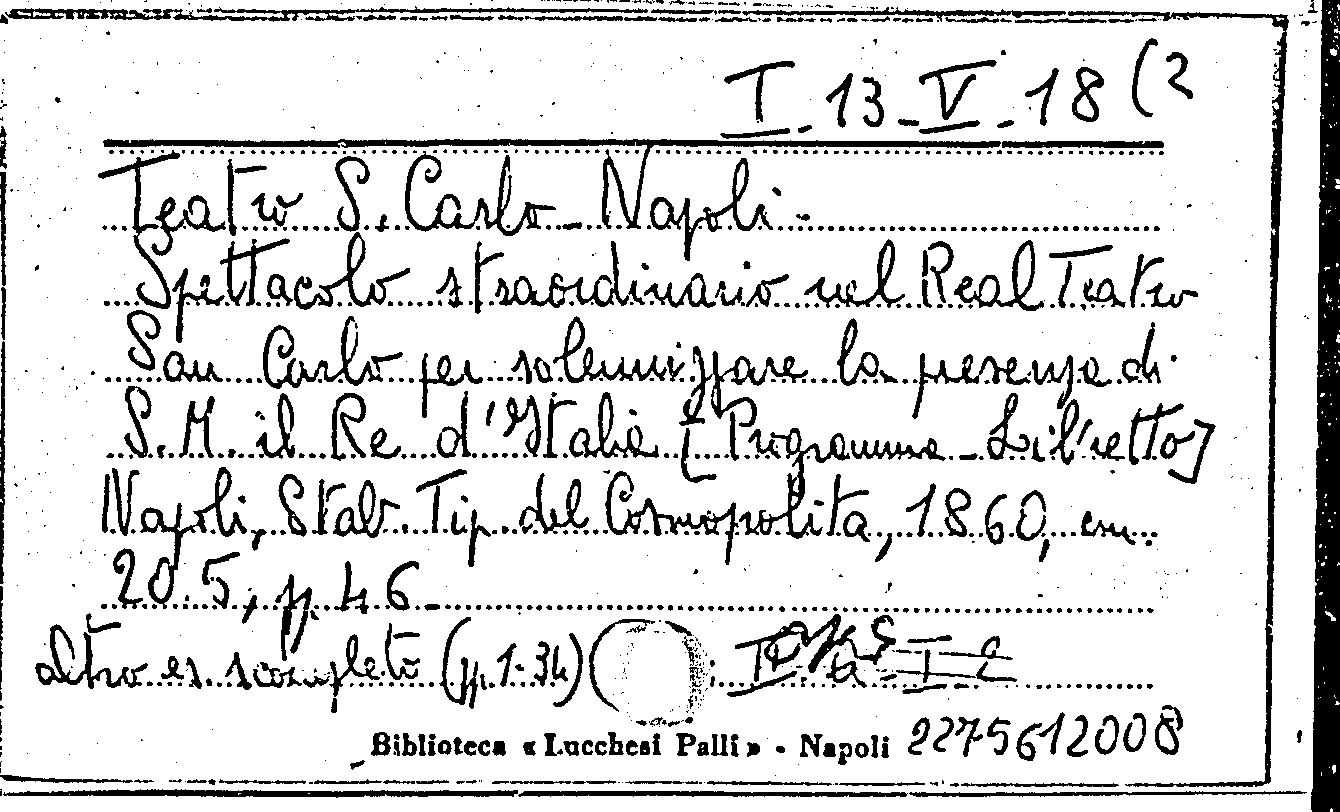 I-13-V-18(2
Teatro S. Carlo - Napoli -
Spettacolo straordinario nel Real Teatro
San Carlo per solennizzare la presenza di
S. M. il Re d'Italia [Programma - Libretto]
Napoli, Stab. Tip. del Cosmopolita, 1860, cm.
20.5, p. 46 -
altro es. scompleto (pp. 1-34) (
Biblioteca « Lucchesi Palli » - Napoli 2275612008